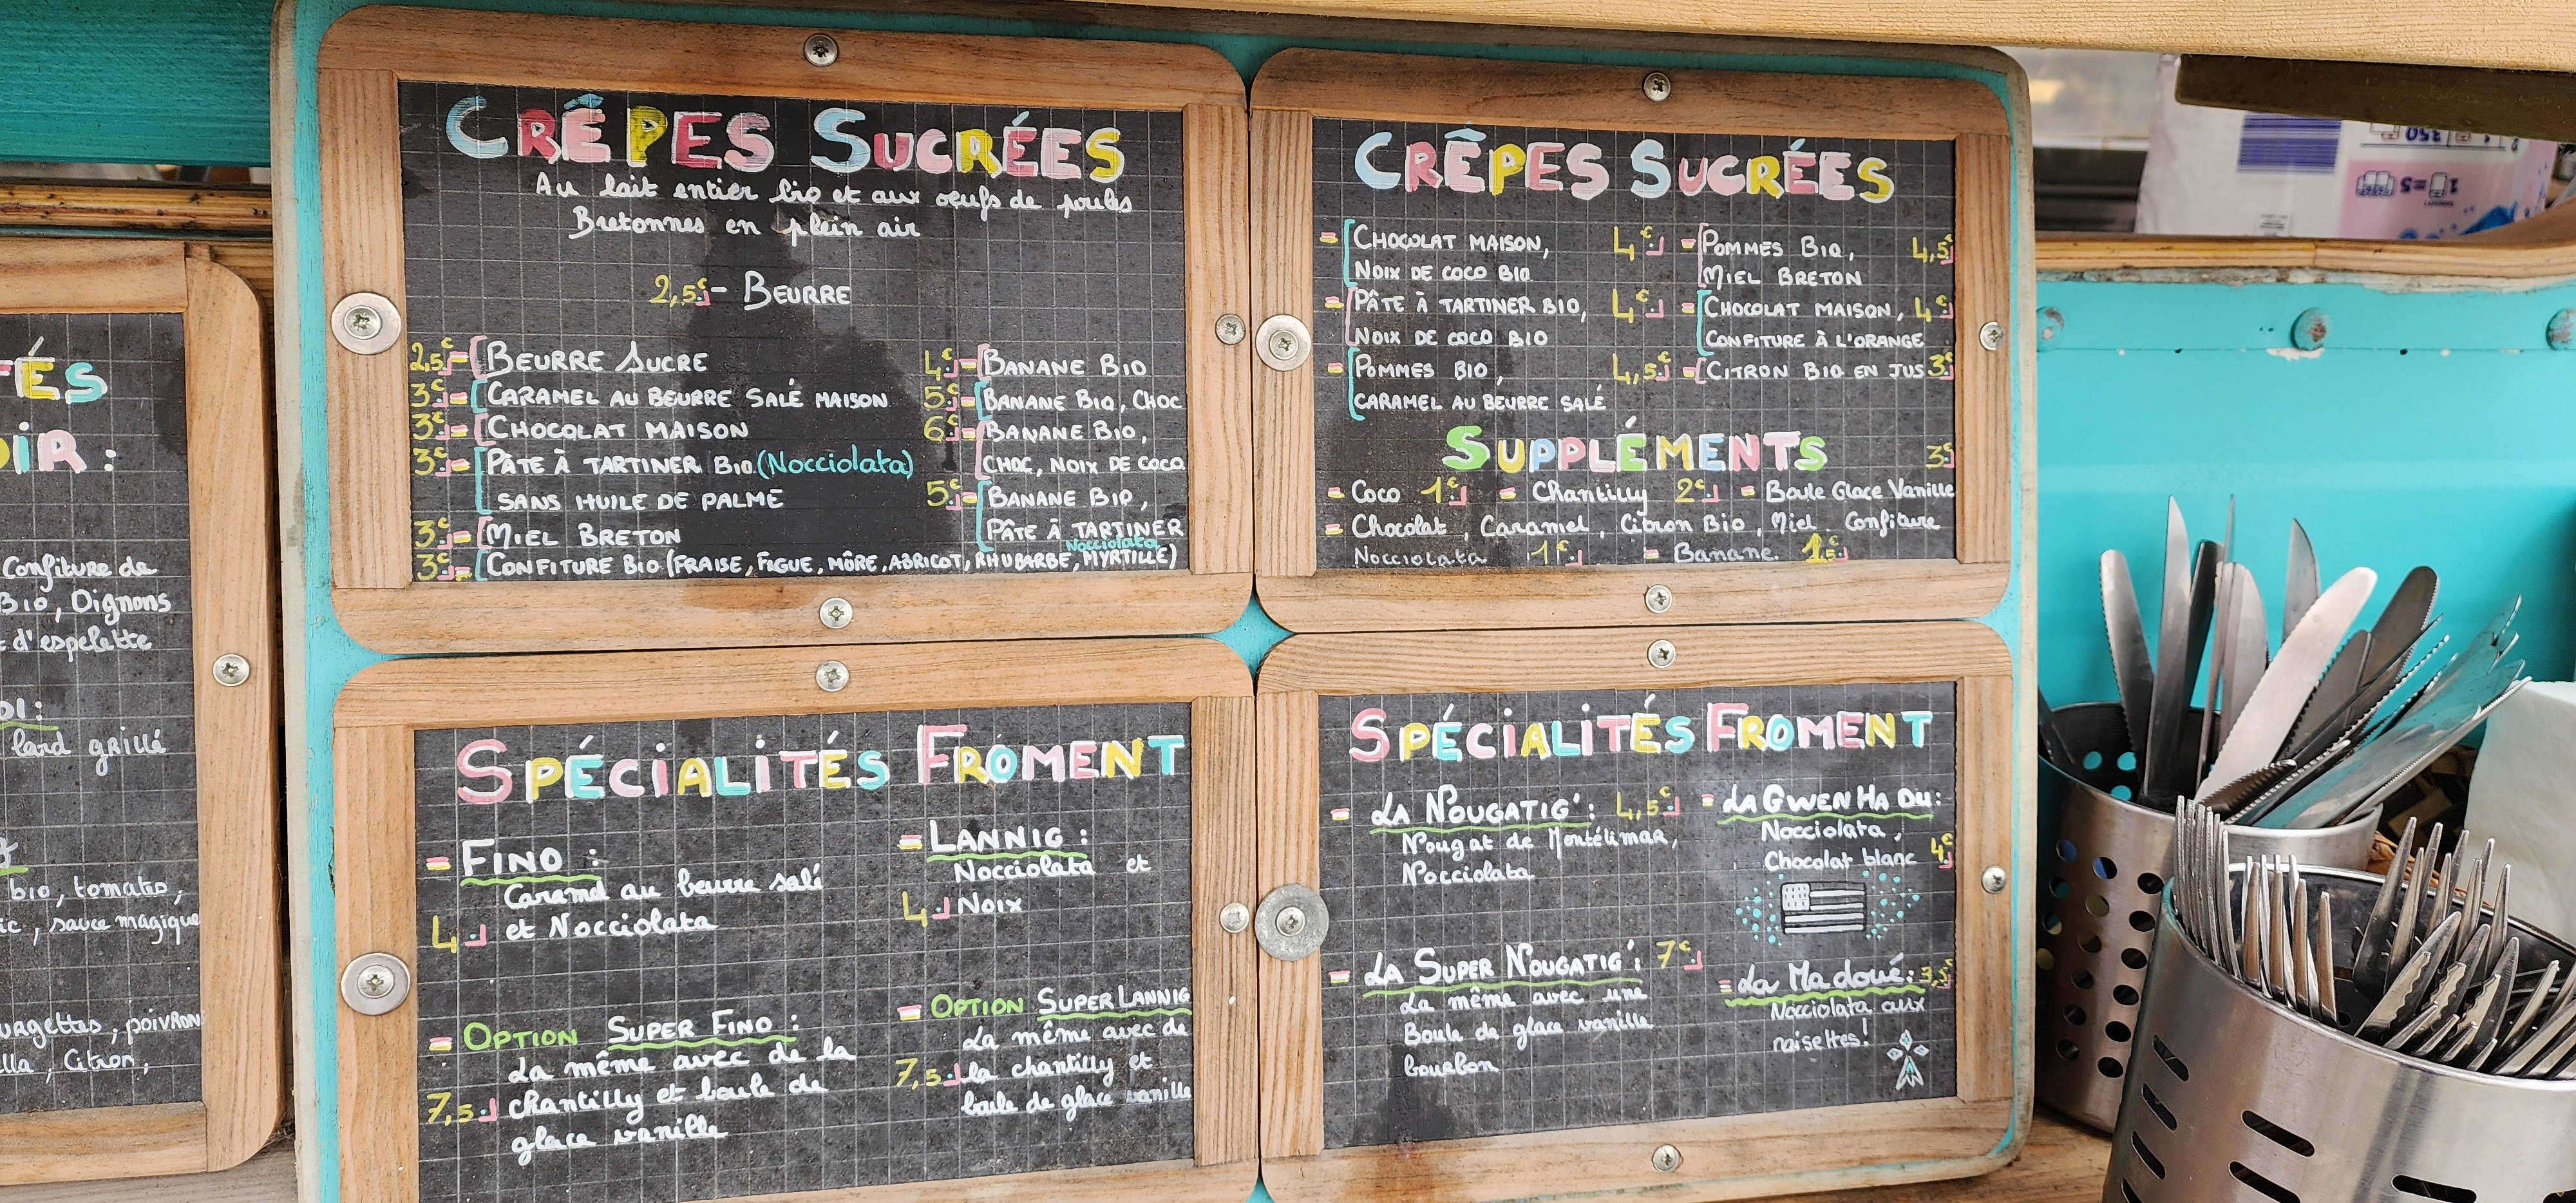 TÉS
OIR :
Confiture de
Bio, Oignons
d'espelette
DI :
lard grillé
bio, tomates,
ic, sauce magique
urgettes, poivron
lla, Citron,
CRÊPES SUCRÉES
Au lait entier bio et aux oeufs de poules
Bretonnes en plein air
2,5€ - BEURRE
2,5€ BEURRE SUCRE
3€ CARAMEL AU BEURRE SALÉ MAISON
3€ CHOCOLAT MAISON
3€ PÂTE À TARTINER BIO (Nocciolata)
SANS HUILE DE PALME
3€ MIEL BRETON
3€ CONFITURE BIO (FRAISE, FIGUE, MÛRE, ABRICOT, RHUBARBE, MYRTILLE)
4€ BANANE BIO
5€ BANANE BIO, CHOC
6€ BANANE BIO,
CHOC, NOIX DE COCO
5€ BANANE BIO,
PÂTE À TARTINER
Nocciolata
CRÊPES SUCRÉES
CHOCOLAT MAISON, 4€
NOIX DE COCO BIO
PÂTE À TARTINER BIO, 4€
NOIX DE COCO BIO
POMMES BIO, 4,5€
CARAMEL AU BEURRE SALÉ
POMMES BIO, 4,5€
MIEL BRETON
CHOCOLAT MAISON, 4€
CONFITURE À L'ORANGE
CITRON BIO EN JUS 3€
SUPPLÉMENTS 3€
Coco 1€ Chantilly 2€ Boule Glace Vanille
Chocolat, Caramel, Citron Bio, Miel, Confiture
Nocciolata 1€ Banane 1,5€
SPÉCIALITÉS FROMENT
FINO :
Caramel au beurre salé
4 et Nocciolata
OPTION SUPER FINO :
La même avec de la
7,5 chantilly et boule de
glace vanille
LANNIG :
Nocciolata et
4 Noix
OPTION SUPER LANNIG
La même avec de
7,5 la chantilly et
boule de glace vanille
SPÉCIALITÉS FROMENT
LA NOUGATIG' : 4,5€
Nougat de Montélimar,
Nocciolata
LA SUPER NOUGATIG' : 7€
La même avec une
Boule de glace vanille
bourbon
LA GWEN HA DU :
Nocciolata,
Chocolat blanc 4€
La Ma doué : 3,5€
Nocciolata aux
noisettes !